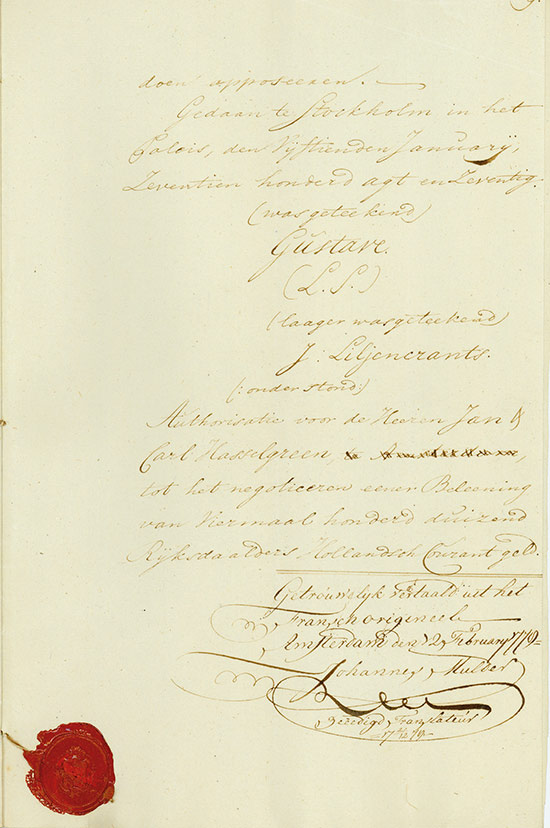 doen apposeeren.
Gedaan te Stockholm in het
Palais, den Vyftienden January,
Zeventien honderd agt en Zeventig.
(was geteekend)
Gustave.
(L. S.)
(laager was geteekend)
J: Liljencrants.
(: onder stond:)
Authorisatie voor de Heeren Jan &
Carl Hasselgreen,
tot het negotieeren eener Beleening
van Viermaal honderd duizend
Ryksdaalders Hollandsch Courant geld.
Getrouwelyk Vertaald uit het
Fransch origineel
Amsterdam den 2 February 1779
Johannes Mulder
Beëedigd Translateur